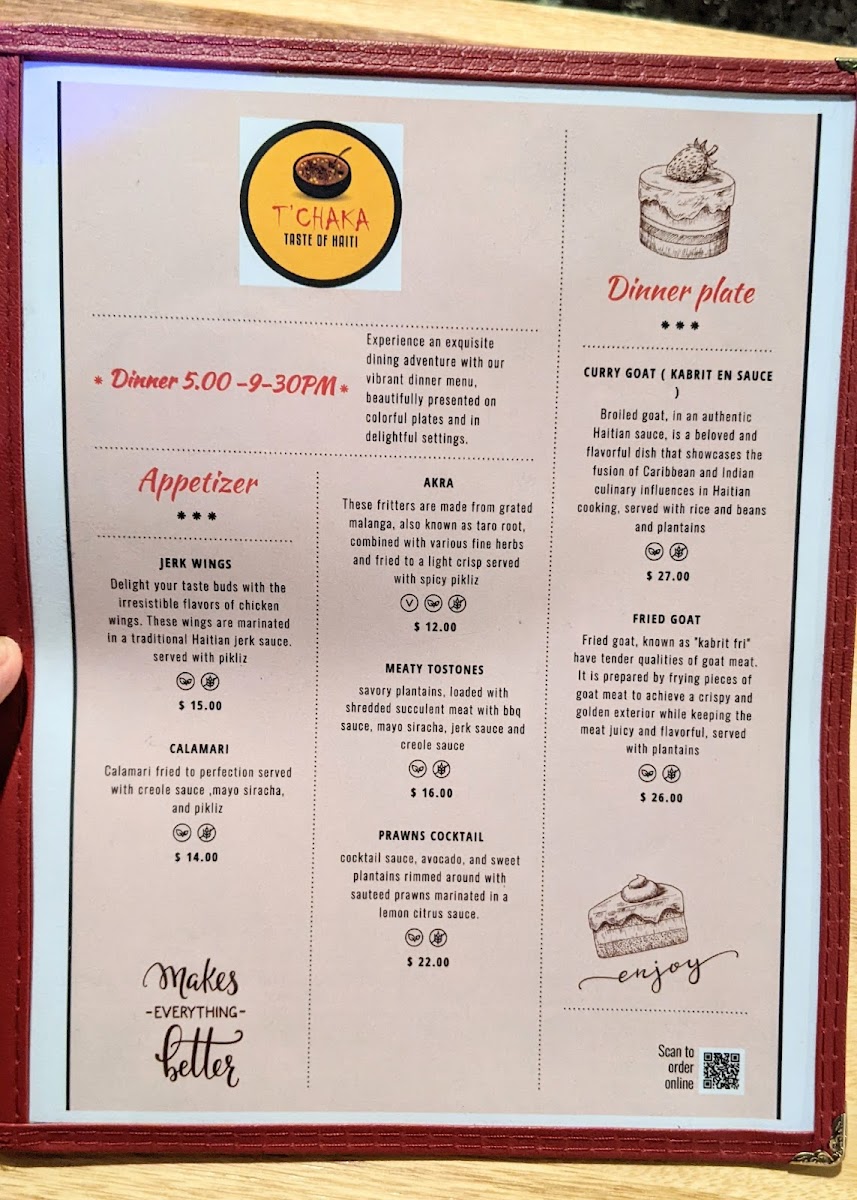 T'CHAKA
TASTE OF HAITI
* Dinner 5.00 -9-30PM *
Experience an exquisite
dining adventure with our
vibrant dinner menu,
beautifully presented on
colorful plates and in
delightful settings.
Appetizer
***
JERK WINGS
Delight your taste buds with the
irresistible flavors of chicken
wings. These wings are marinated
in a traditional Haitian jerk sauce.
served with pikliz
$ 15.00
CALAMARI
Calamari fried to perfection served
with creole sauce ,mayo siracha,
and pikliz
$ 14.00
Makes
-EVERYTHING-
better
AKRA
These fritters are made from grated
malanga, also known as taro root,
combined with various fine herbs
and fried to a light crisp served
with spicy pikliz
V
$ 12.00
MEATY TOSTONES
savory plantains, loaded with
shredded succulent meat with bbq
sauce, mayo siracha, jerk sauce and
creole sauce
$ 16.00
PRAWNS COCKTAIL
cocktail sauce, avocado, and sweet
plantains rimmed around with
sauteed prawns marinated in a
lemon citrus sauce.
$ 22.00
Dinner plate
***
CURRY GOAT ( KABRIT EN SAUCE
)
Broiled goat, in an authentic
Haitian sauce, is a beloved and
flavorful dish that showcases the
fusion of Caribbean and Indian
culinary influences in Haitian
cooking, served with rice and beans
and plantains
$ 27.00
FRIED GOAT
Fried goat, known as "kabrit fri"
have tender qualities of goat meat.
It is prepared by frying pieces of
goat meat to achieve a crispy and
golden exterior while keeping the
meat juicy and flavorful, served
with plantains
$ 26.00
enjoy
Scan to
order
online